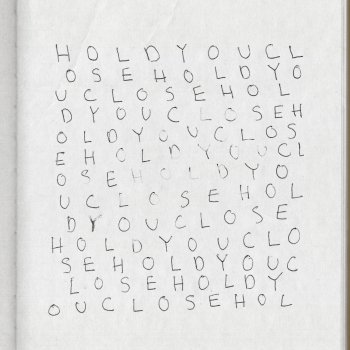 H O L D Y O U C L
O S E H O L D Y O
U C L O S E H O L
D Y O U C L O S E H
O L D Y O U C L O S
E H O L D Y O U C L
O S E H O L D Y O
U C L O S E H O L
D Y O U C L O S E
H O L D Y O U C L O
S E H O L D Y O U C
L O S E H O L D Y
O U C L O S E H O L